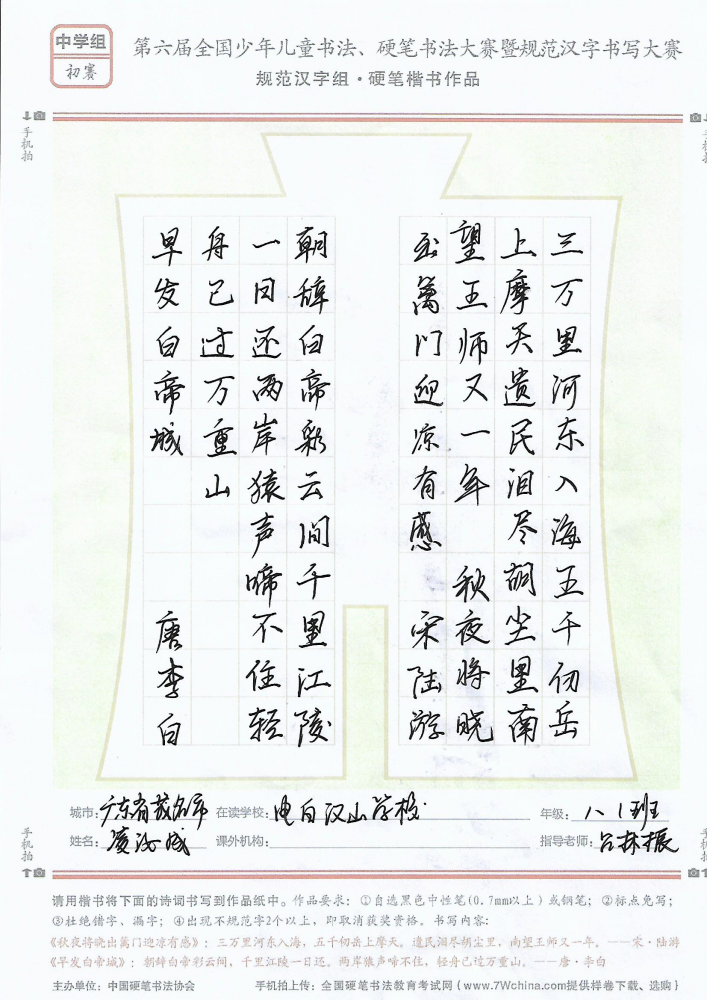 中学组
初赛
第六届全国少年儿童书法、硬笔书法大赛暨规范汉字书写大赛
规范汉字组·硬笔楷书作品
手机拍
手机拍
三万里河东入海五千仞岳
上摩天遗民泪尽胡尘里南
望王师又一年 秋夜将晓
出篱门迎凉有感 宋陆游
朝辞白帝彩云间千里江陵
一日还两岸猿声啼不住轻
舟已过万重山
早发白帝城 唐李白
城市：广东省茂名市 在读学校：电白汉山学校 年级：八1班
姓名： 课外机构： 指导老师：吕林振
手机拍
手机拍
请用楷书将下面的诗词书写到作品纸中。作品要求：①自选黑色中性笔(0.7mm以上)或钢笔；②标点免写；
③杜绝错字、漏字；④出现不规范字2个以上，即取消获奖资格。书写内容：
《秋夜将晓出篱门迎凉有感》：三万里河东入海，五千仞岳上摩天。遗民泪尽胡尘里，南望王师又一年。——宋·陆游
《早发白帝城》：朝辞白帝彩云间，千里江陵一日还。两岸猿声啼不住，轻舟已过万重山。——唐·李白
主办单位：中国硬笔书法协会 手机拍上传：全国硬笔书法教育考试网（www.7Wchina.com提供样卷下载、选购）